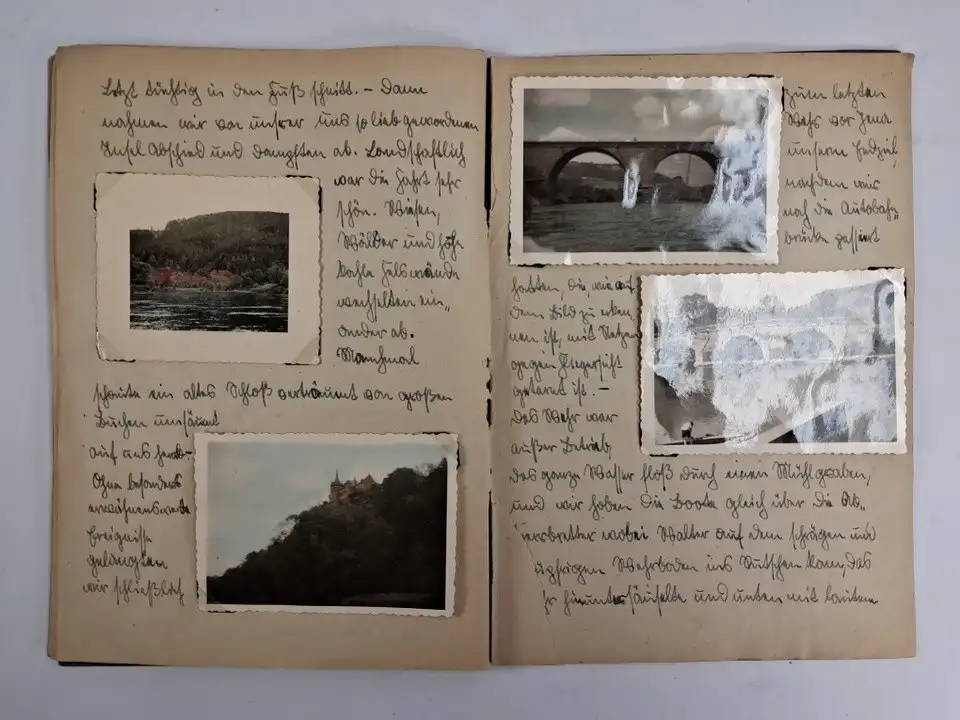 tüchtig in den Fuß schnitt. – Dann
nahmen wir von unsrer uns so lieb gewordenen
Insel Abschied und dampften ab. Landschaftlich
war die Fahrt sehr
schön. Wiesen,
Wälder und hohe
kahle Felswände
wechselten ein„
ander ab.
Manchmal
schaute ein altes Schloß verträumt von großen
Buchen umsäumt
auf uns herab.
Ohne besonders
erwähnenswerte
Ereignisse
gelangten
wir schließlich
zum letzten
Wehr vor Jena
unserm
nachdem wir
noch die Autobahn„
brücke passiert
hatten, die, wie auf
dem Bild zu erken„
nen ist, mit Netzen
gegen Fliegersicht
getarnt ist. –
Das Wehr war
außer Betrieb,
das ganze Wasser floß durch einen Mühlgraben,
und wir hoben die Boote gleich über die
wobei Walter auf dem schrägen und
Wehrboden ins Rutschen kam, das
hinuntersäuselte und unten mit lautem